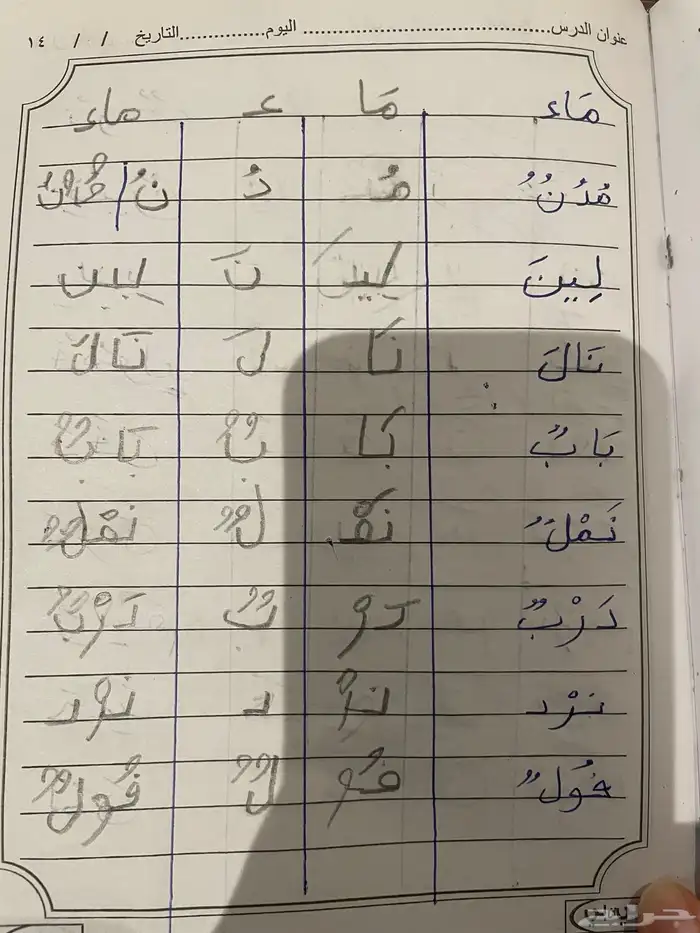 عنوان الدرس................................ اليوم...............التاريخ / / ١٤
مَاء مَا ء ماء
مُدُنٌ مُـ دُ نُ / مُدُنٌ
لِينَ لِينَ نَ لِين
نَالَ نَا لَ نَالَ
بَابٌ بَا بٌ بَابٌ
نَمْلٌ نَمْـ لٌ نَمْلٌ
دَرْبٌ دَرْ بٌ دَرْبٌ
نرْد نرْ د نرْد
فُولٌ فُو لٌ فُولٌ
حراج